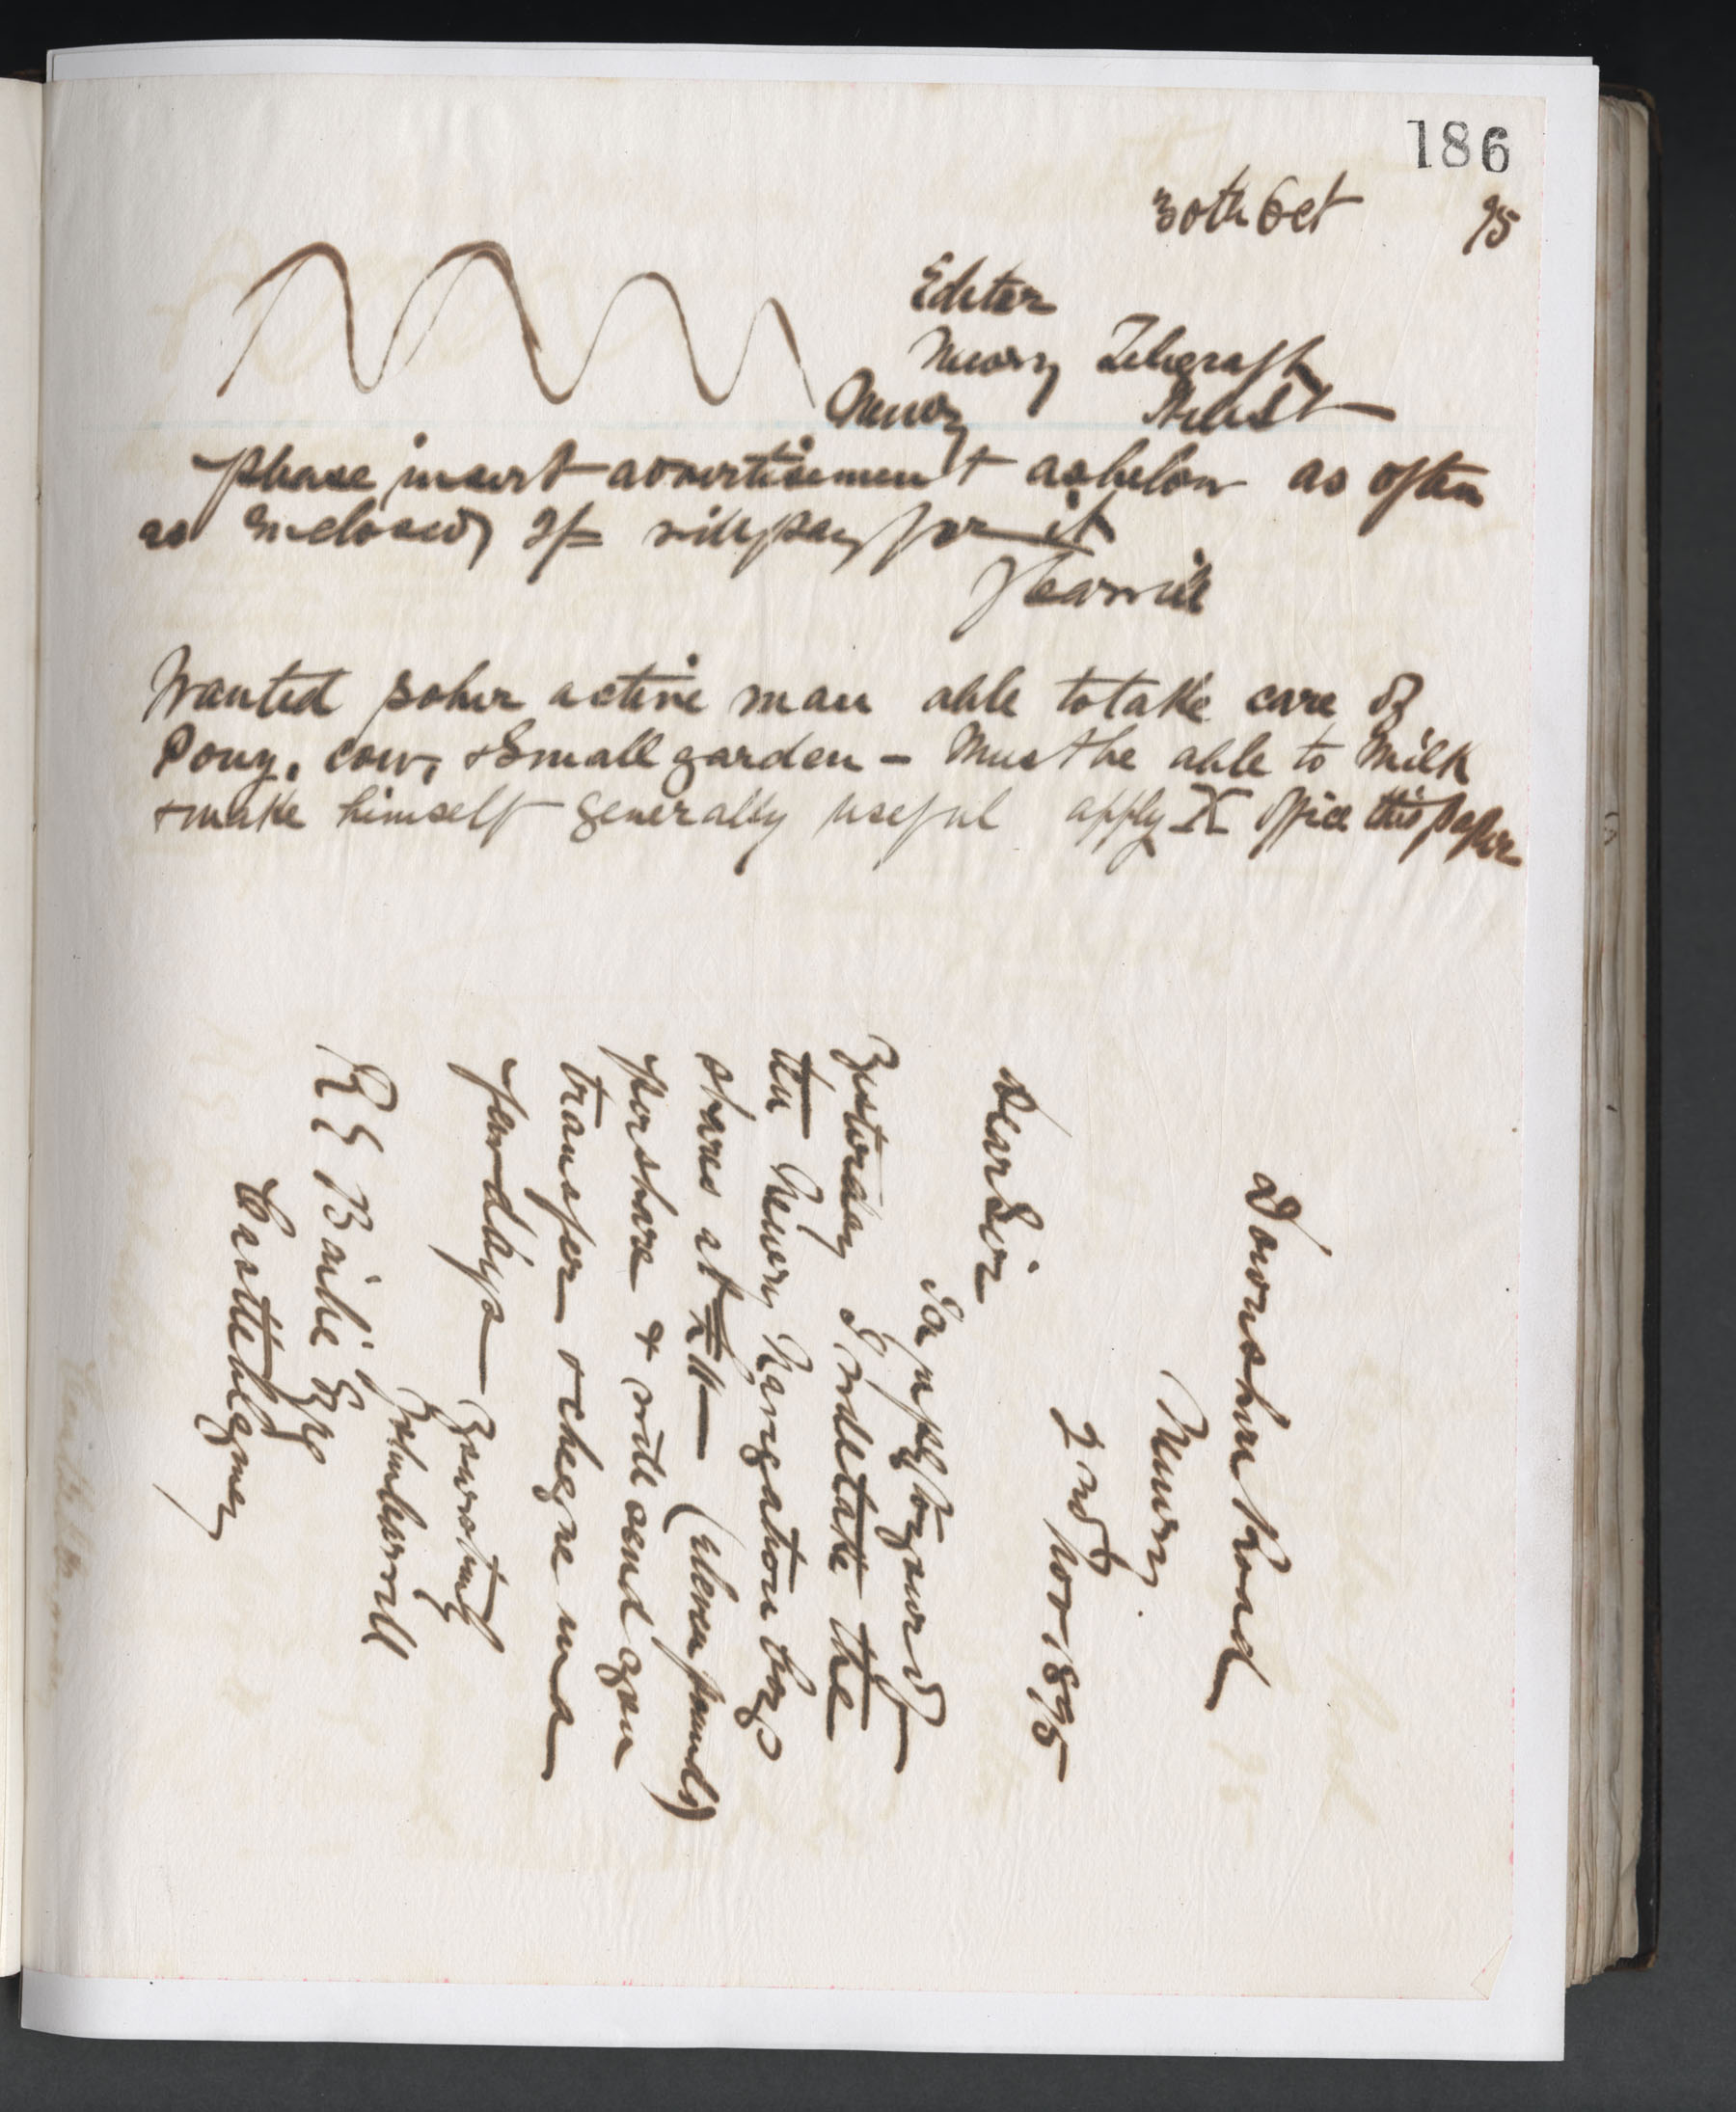 186
30th Oct 95
Editor
Newry Telegraph
Newry
Please insert advertisement as below as often
as enclosed 2/= will pay for it
JCarvill
Wanted sober active man able to take care of
Pony, cow, & Small garden - Must be able to Milk
& make himself generally useful apply X Office this paper
Downshire Road
Newry
2nd Nov 1895
Dear Sir
In reply to yours of
Yesterday I will take the
ten Newry Navigation Coys
shares at £11 (eleven pounds)
per share & will send you
transfer & cheque in a
few days
Yours truly
John Carvill
R E Bailie Esq
Castleblayney